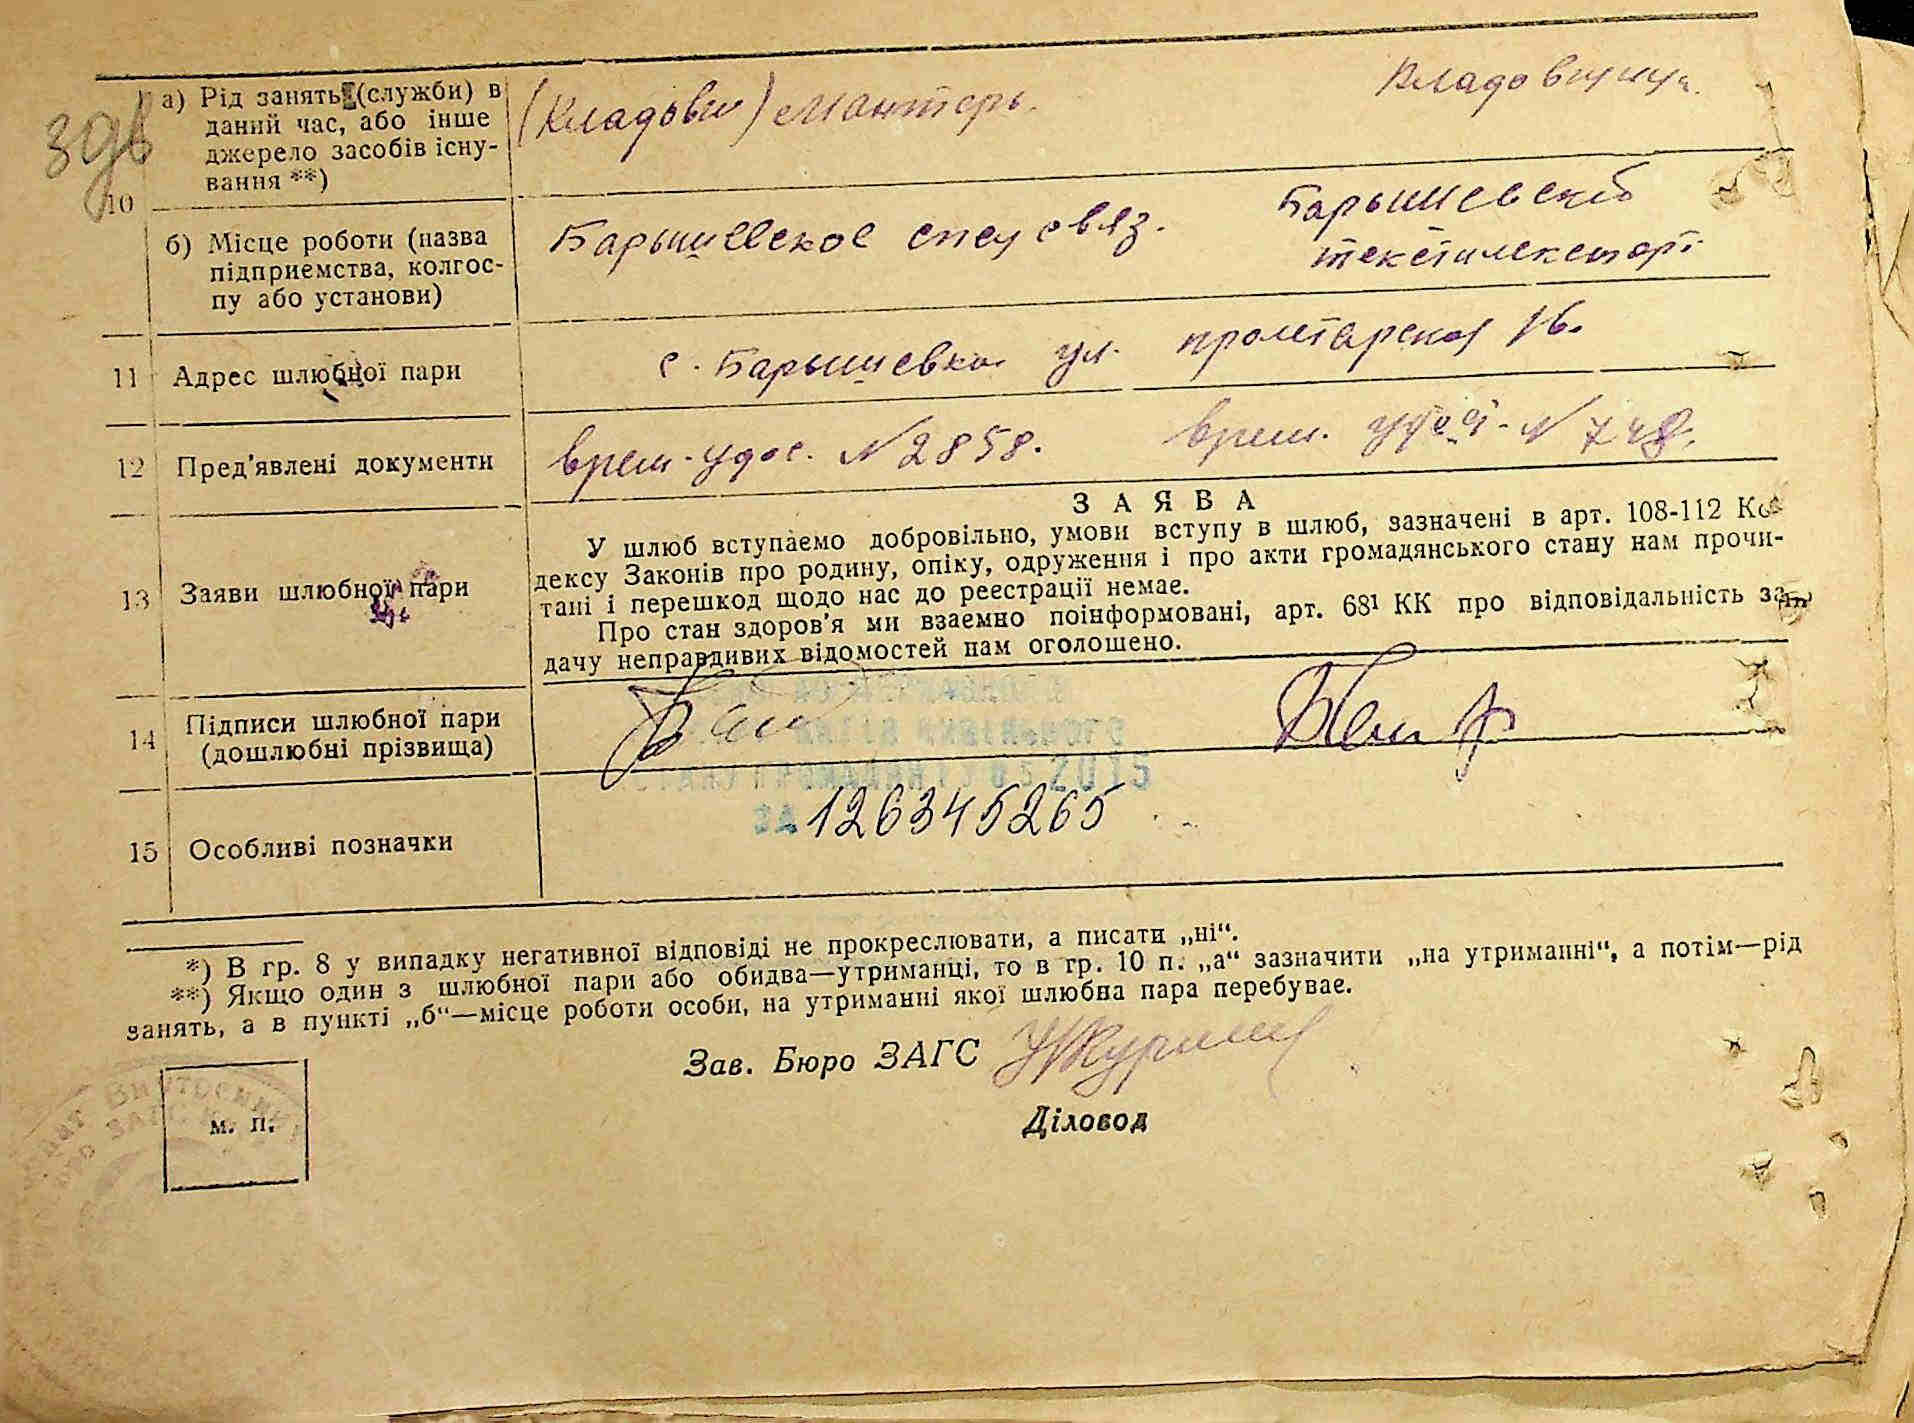 а) Рід занять (служби) в
даний час, або інше
джерело засобів існу-
вання **)
(Кладовщ) Монтерь.
Кладовщица.
10
б) Місце роботи (назва
підприємства, колгос-
пу або установи)
Барышевское связ.
Барышевский
11 Адрес шлюбної пари
с. Барышевка ул. пролетарская 16.
12 Пред'явлені документи
врем. удос. N 2858.
врем. удост. N 748.
13 Заяви шлюбної пари
ЗАЯВА
У шлюб вступаємо добровільно, умови вступу в шлюб, зазначені в арт. 108-112 Ко-
дексу Законів про родину, опіку, одруження і про акти громадянського стану нам прочи-
тані і перешкод щодо нас до реестрації немає.
Про стан здоров'я ми взаємно поінформовані, арт. 68¹ КК про відповідальність за
дачу неправдивих відомостей нам оголошено.
14 Підписи шлюбної пари
(дошлюбні прізвища)
2015
ЗА 126345265
15 Особливі позначки
*) В гр. 8 у випадку негативної відповіді не прокреслювати, а писати „ні“.
**) Якщо один з шлюбної пари або обидва—утриманці, то в гр. 10 п. „а“ зазначити „на утриманні“, а потім—рід
занять, а в пункті „б“—місце роботи особи, на утриманні якої шлюбна пара перебуває.
Зав. Бюро ЗАГС
Діловод
м. п.